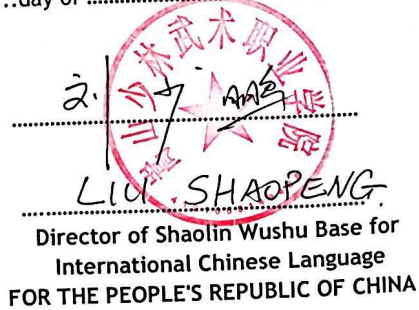 ..day of
嵩山少林武术职业学院
刘少鹏
LIU SHAOPENG
Director of Shaolin Wushu Base for
International Chinese Language
FOR THE PEOPLE'S REPUBLIC OF CHINA